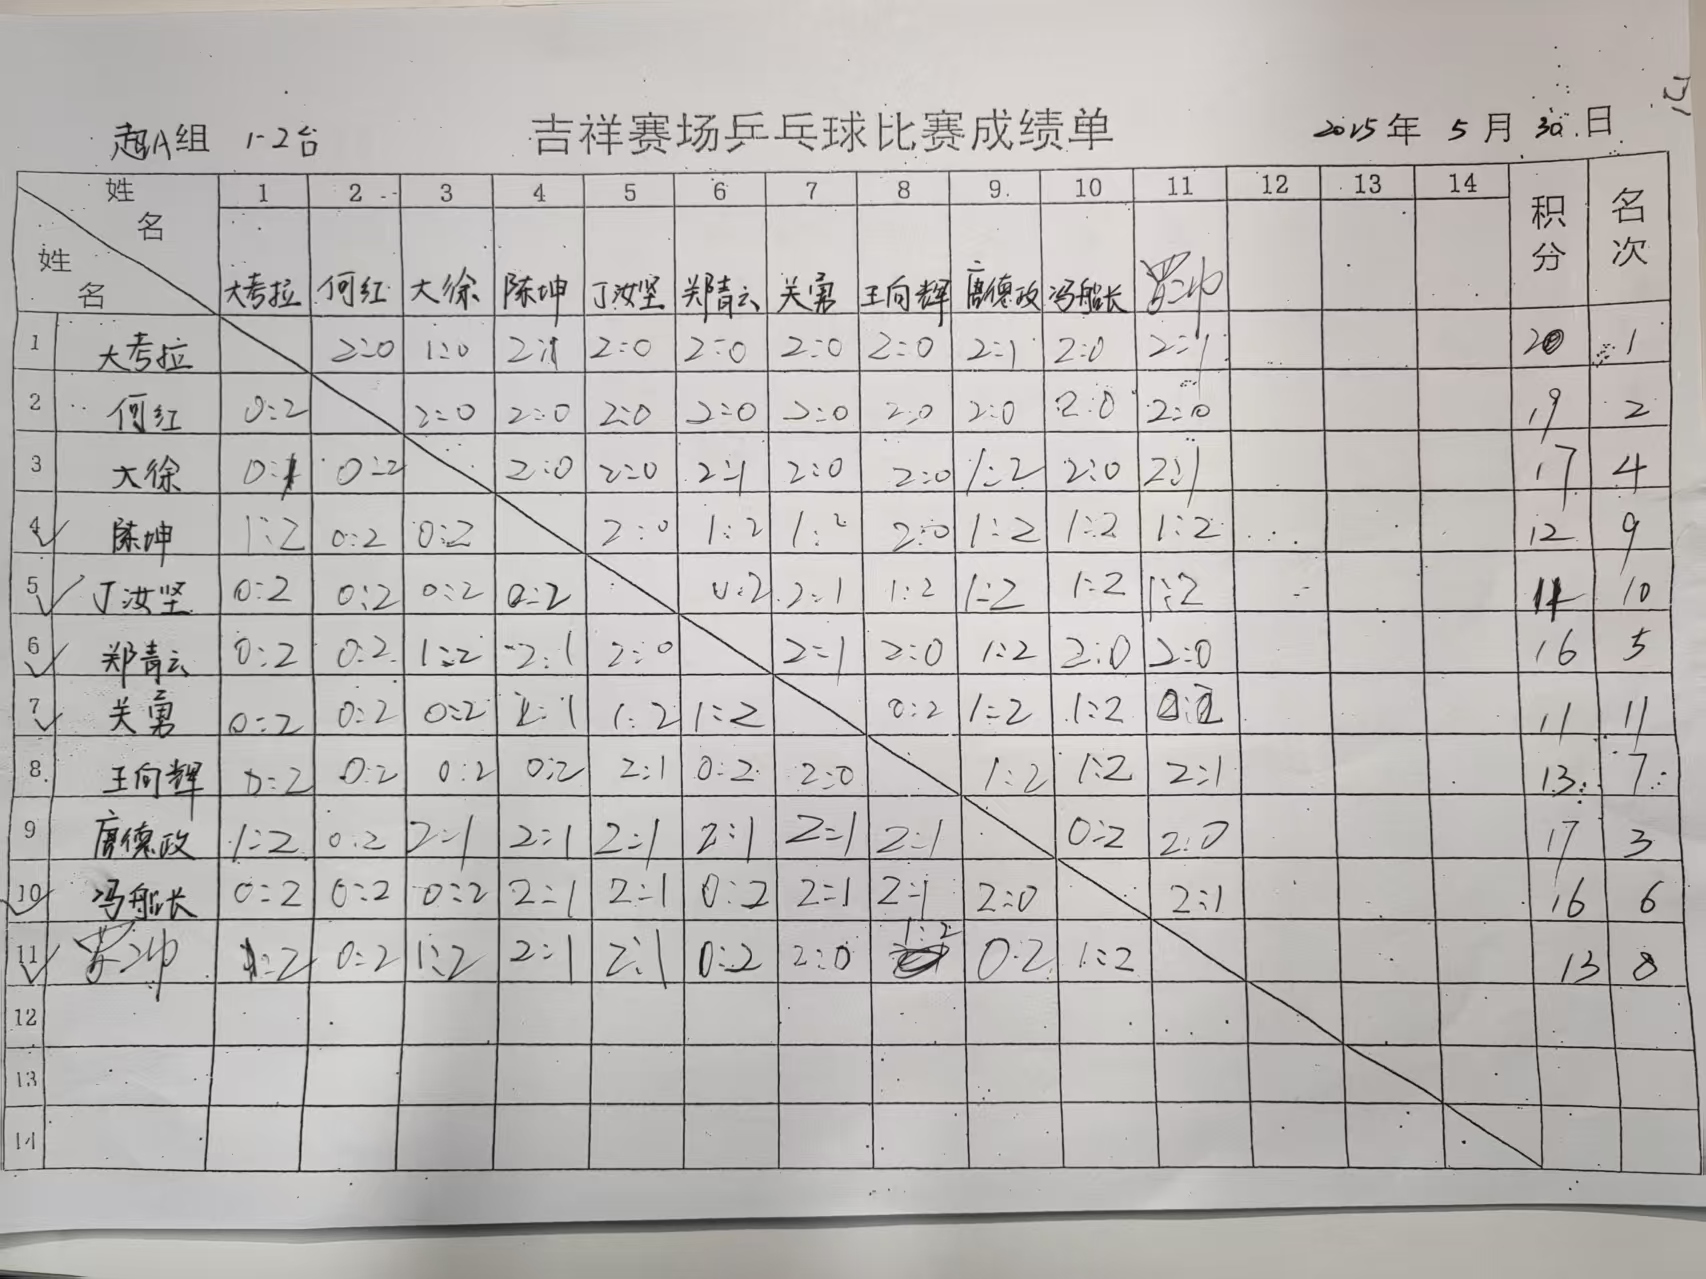 超A组 1-2台 吉祥赛场乒乓球比赛成绩单 2025年 5月 30日
姓名 1 2 3 4 5 6 7 8 9 10 11 12 13 14 积分 名次
姓名 大考拉 何红 大徐 陈坤 丁汝坚 郑青云 关勇 王向辉 唐德政 冯船长
1 大考拉 2:0 1:0 2:1 2:0 2:0 2:0 2:0 2:1 2:0 2:1 20 1
2 何红 0:2 2:0 2:0 2:0 2:0 2:0 2:0 2:0 2:0 2:0 19 2
3 大徐 0:1 0:2 2:0 2:0 2:1 2:0 2:0 1:2 2:0 2:1 17 4
4 陈坤 1:2 0:2 0:2 2:0 1:2 1:2 2:0 1:2 1:2 1:2 12 9
5 丁汝坚 0:2 0:2 0:2 0:2 0:2 2:1 1:2 1:2 1:2 1:2 11 10
6 郑青云 0:2 0:2 1:2 2:1 2:0 2:1 2:0 1:2 2:0 2:0 16 5
7 关勇 0:2 0:2 0:2 2:1 1:2 1:2 0:2 1:2 1:2 0:2 11 11
8 王向辉 0:2 0:2 0:2 0:2 2:1 0:2 2:0 1:2 1:2 2:1 13 7
9 唐德政 1:2 0:2 2:1 2:1 2:1 2:1 2:1 2:1 0:2 2:0 17 3
10 冯船长 0:2 0:2 0:2 2:1 2:1 0:2 2:1 2:1 2:0 2:1 16 6
11 1:2 0:2 1:2 2:1 2:1 0:2 2:0 1:2 0:2 1:2 13 8
12
13
14